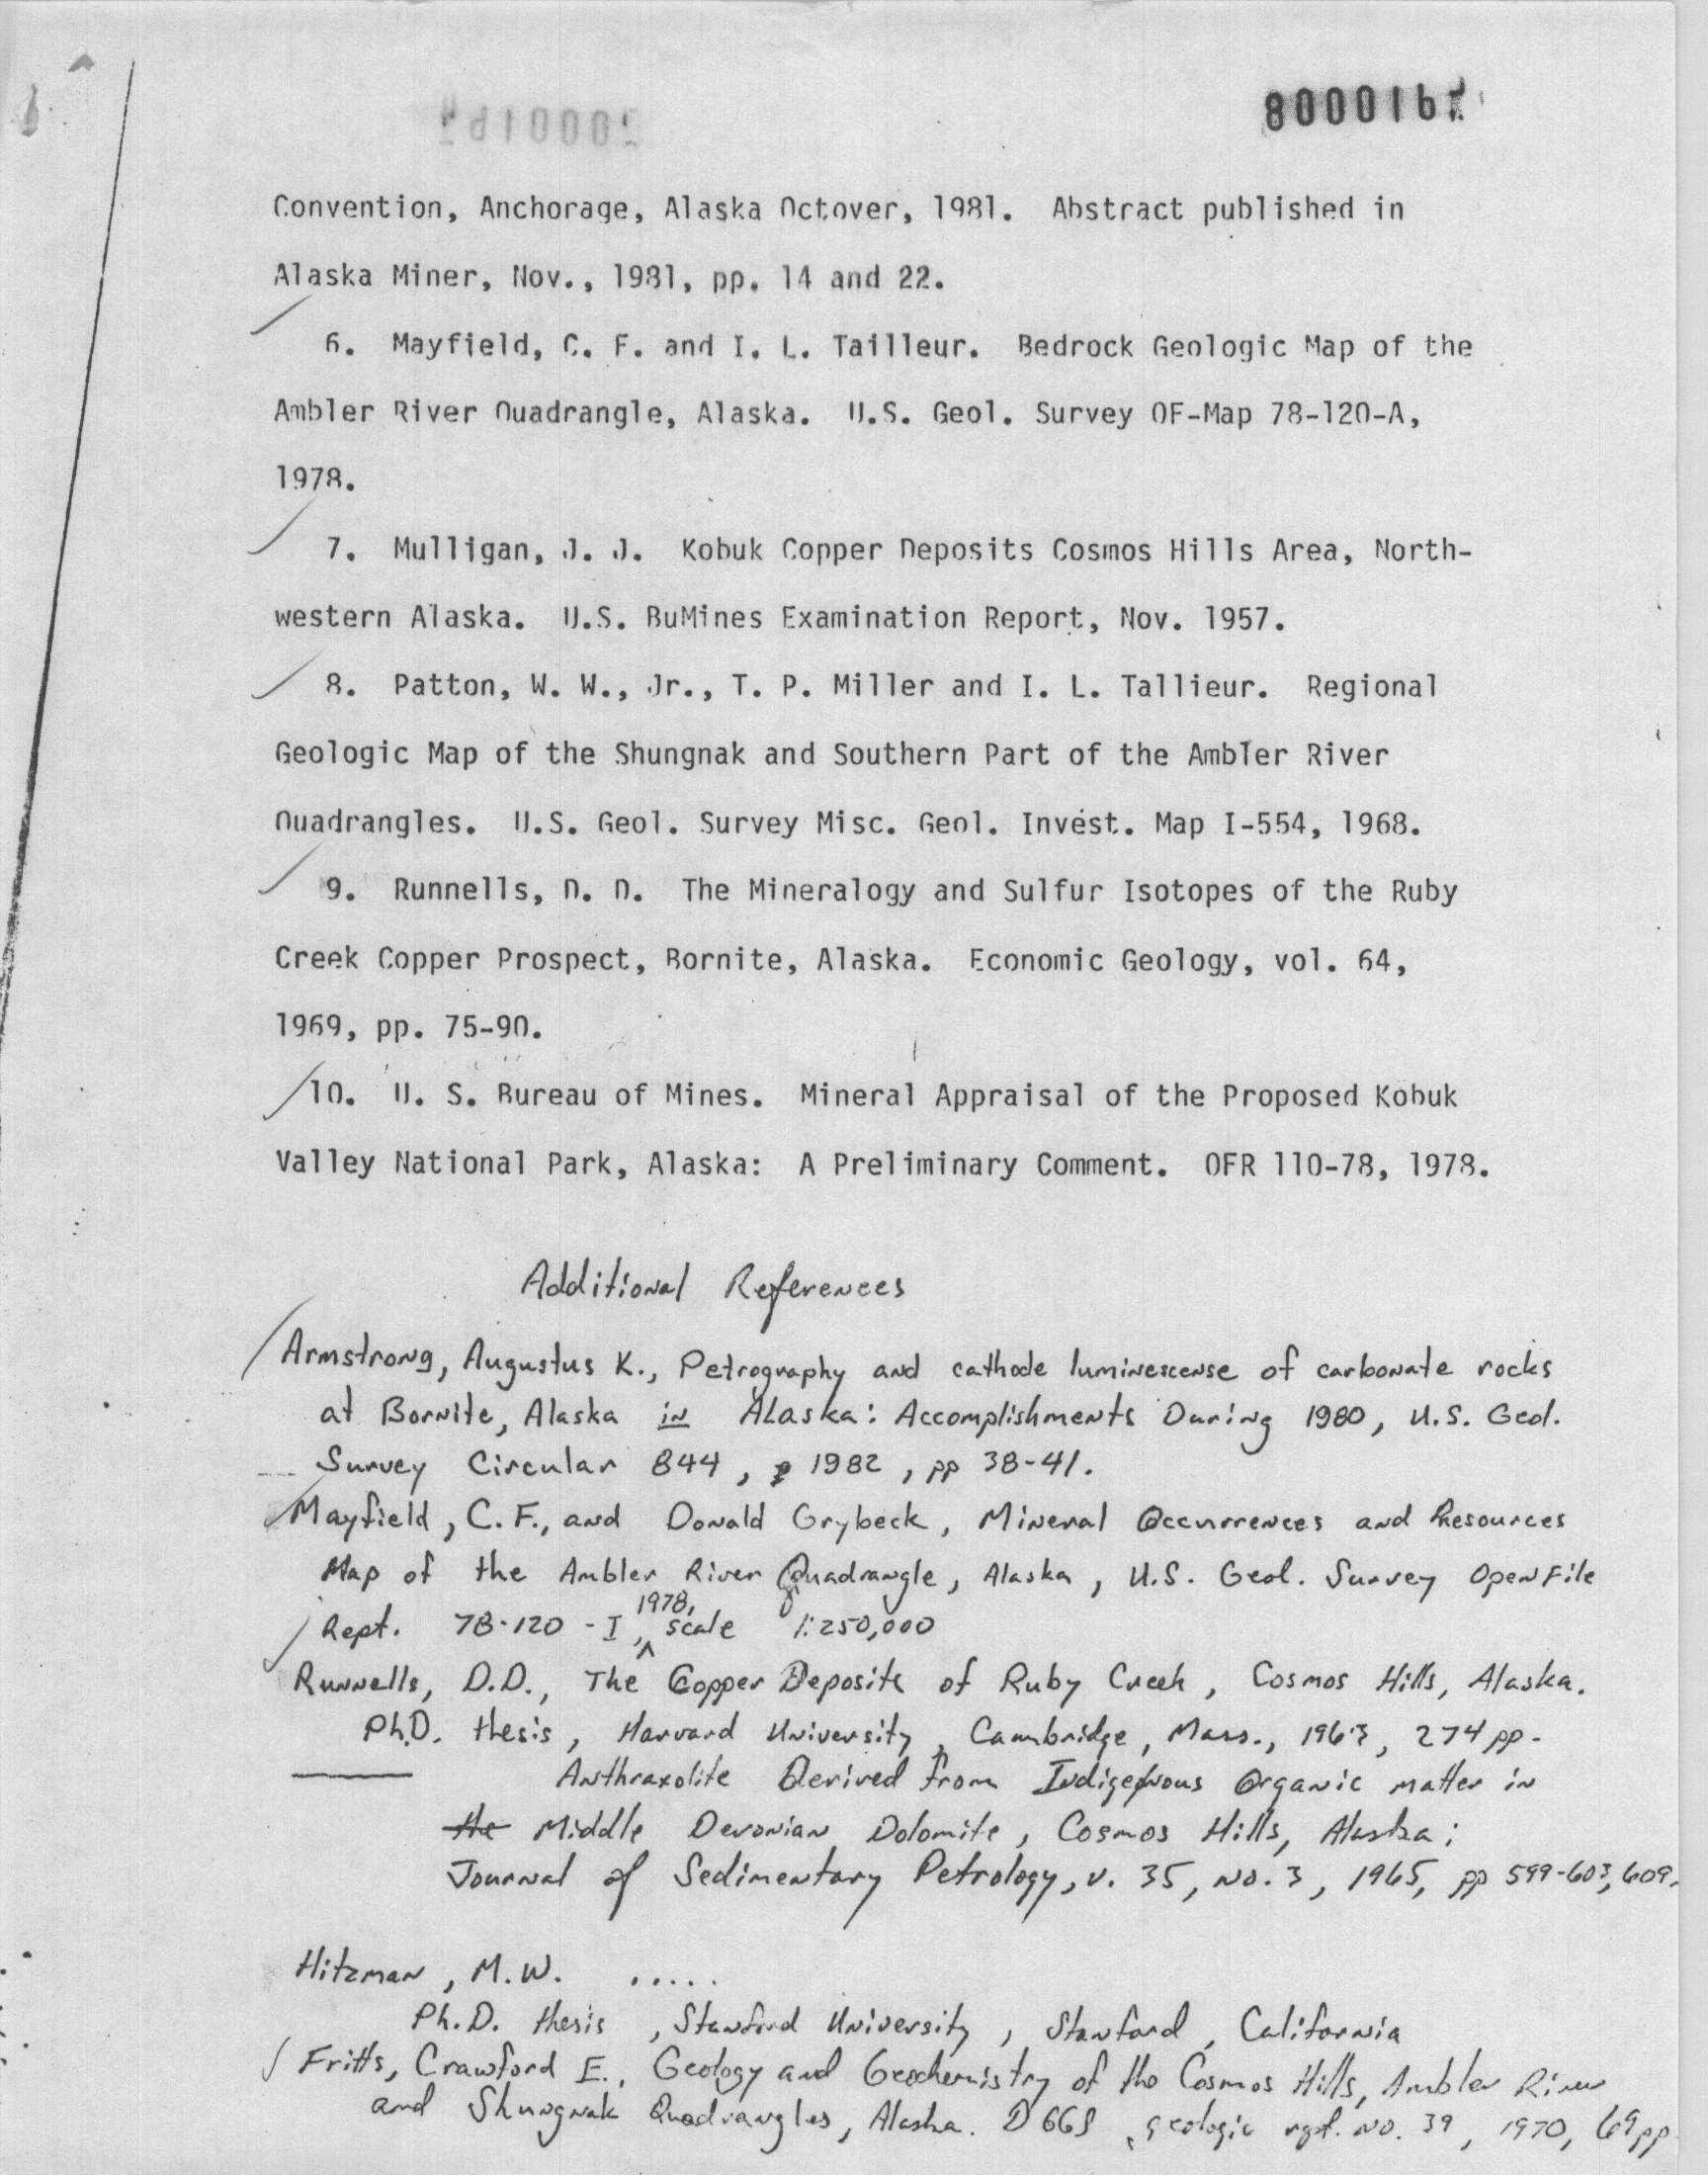 Convention, Anchorage, Alaska Octover, 1981. Abstract published in
Alaska Miner, Nov., 1981, pp. 14 and 22.
6. Mayfield, C. F. and I. L. Tailleur. Bedrock Geologic Map of the
Ambler River Quadrangle, Alaska. U.S. Geol. Survey OF-Map 78-120-A,
1978.
7. Mulligan, J. J. Kobuk Copper Deposits Cosmos Hills Area, North-
western Alaska. U.S. BuMines Examination Report, Nov. 1957.
8. Patton, W. W., Jr., T. P. Miller and I. L. Tallieur. Regional
Geologic Map of the Shungnak and Southern Part of the Ambler River
Quadrangles. U.S. Geol. Survey Misc. Geol. Invest. Map I-554, 1968.
9. Runnells, D. D. The Mineralogy and Sulfur Isotopes of the Ruby
Creek Copper Prospect, Bornite, Alaska. Economic Geology, vol. 64,
1969, pp. 75-90.
10. U. S. Bureau of Mines. Mineral Appraisal of the Proposed Kobuk
Valley National Park, Alaska: A Preliminary Comment. OFR 110-78, 1978.
Additional References
Armstrong, Augustus K., Petrography and cathode luminescense of carbonate rocks
at Bornite, Alaska in Alaska: Accomplishments During 1980, U.S. Geol.
Survey Circular 844, 1982, pp 38-41.
Mayfield, C.F., and Donald Grybeck, Mineral Occurrences and Resources
Map of the Ambler River Quadrangle, Alaska, U.S. Geol. Survey Open File
Rept. 78-120-I, 1978, scale 1:250,000
Runnells, D.D., The Copper Deposits of Ruby Creek, Cosmos Hills, Alaska.
Ph.D. thesis, Harvard University, Cambridge, Mass., 1963, 274 pp.
Anthraxolite Derived from Indigenous Organic matter in
the Middle Devonian Dolomite, Cosmos Hills, Alaska;
Journal of Sedimentary Petrology, v. 35, no. 3, 1965, pp 599-603, 609.
Hitzman, M.W. .....
Ph.D. thesis, Stanford University, Stanford, California
Fritts, Crawford E., Geology and Geochemistry of the Cosmos Hills, Ambler River
and Shungnak Quadrangles, Alaska. DGGS, geologic rept. no. 39, 1970, 69 pp